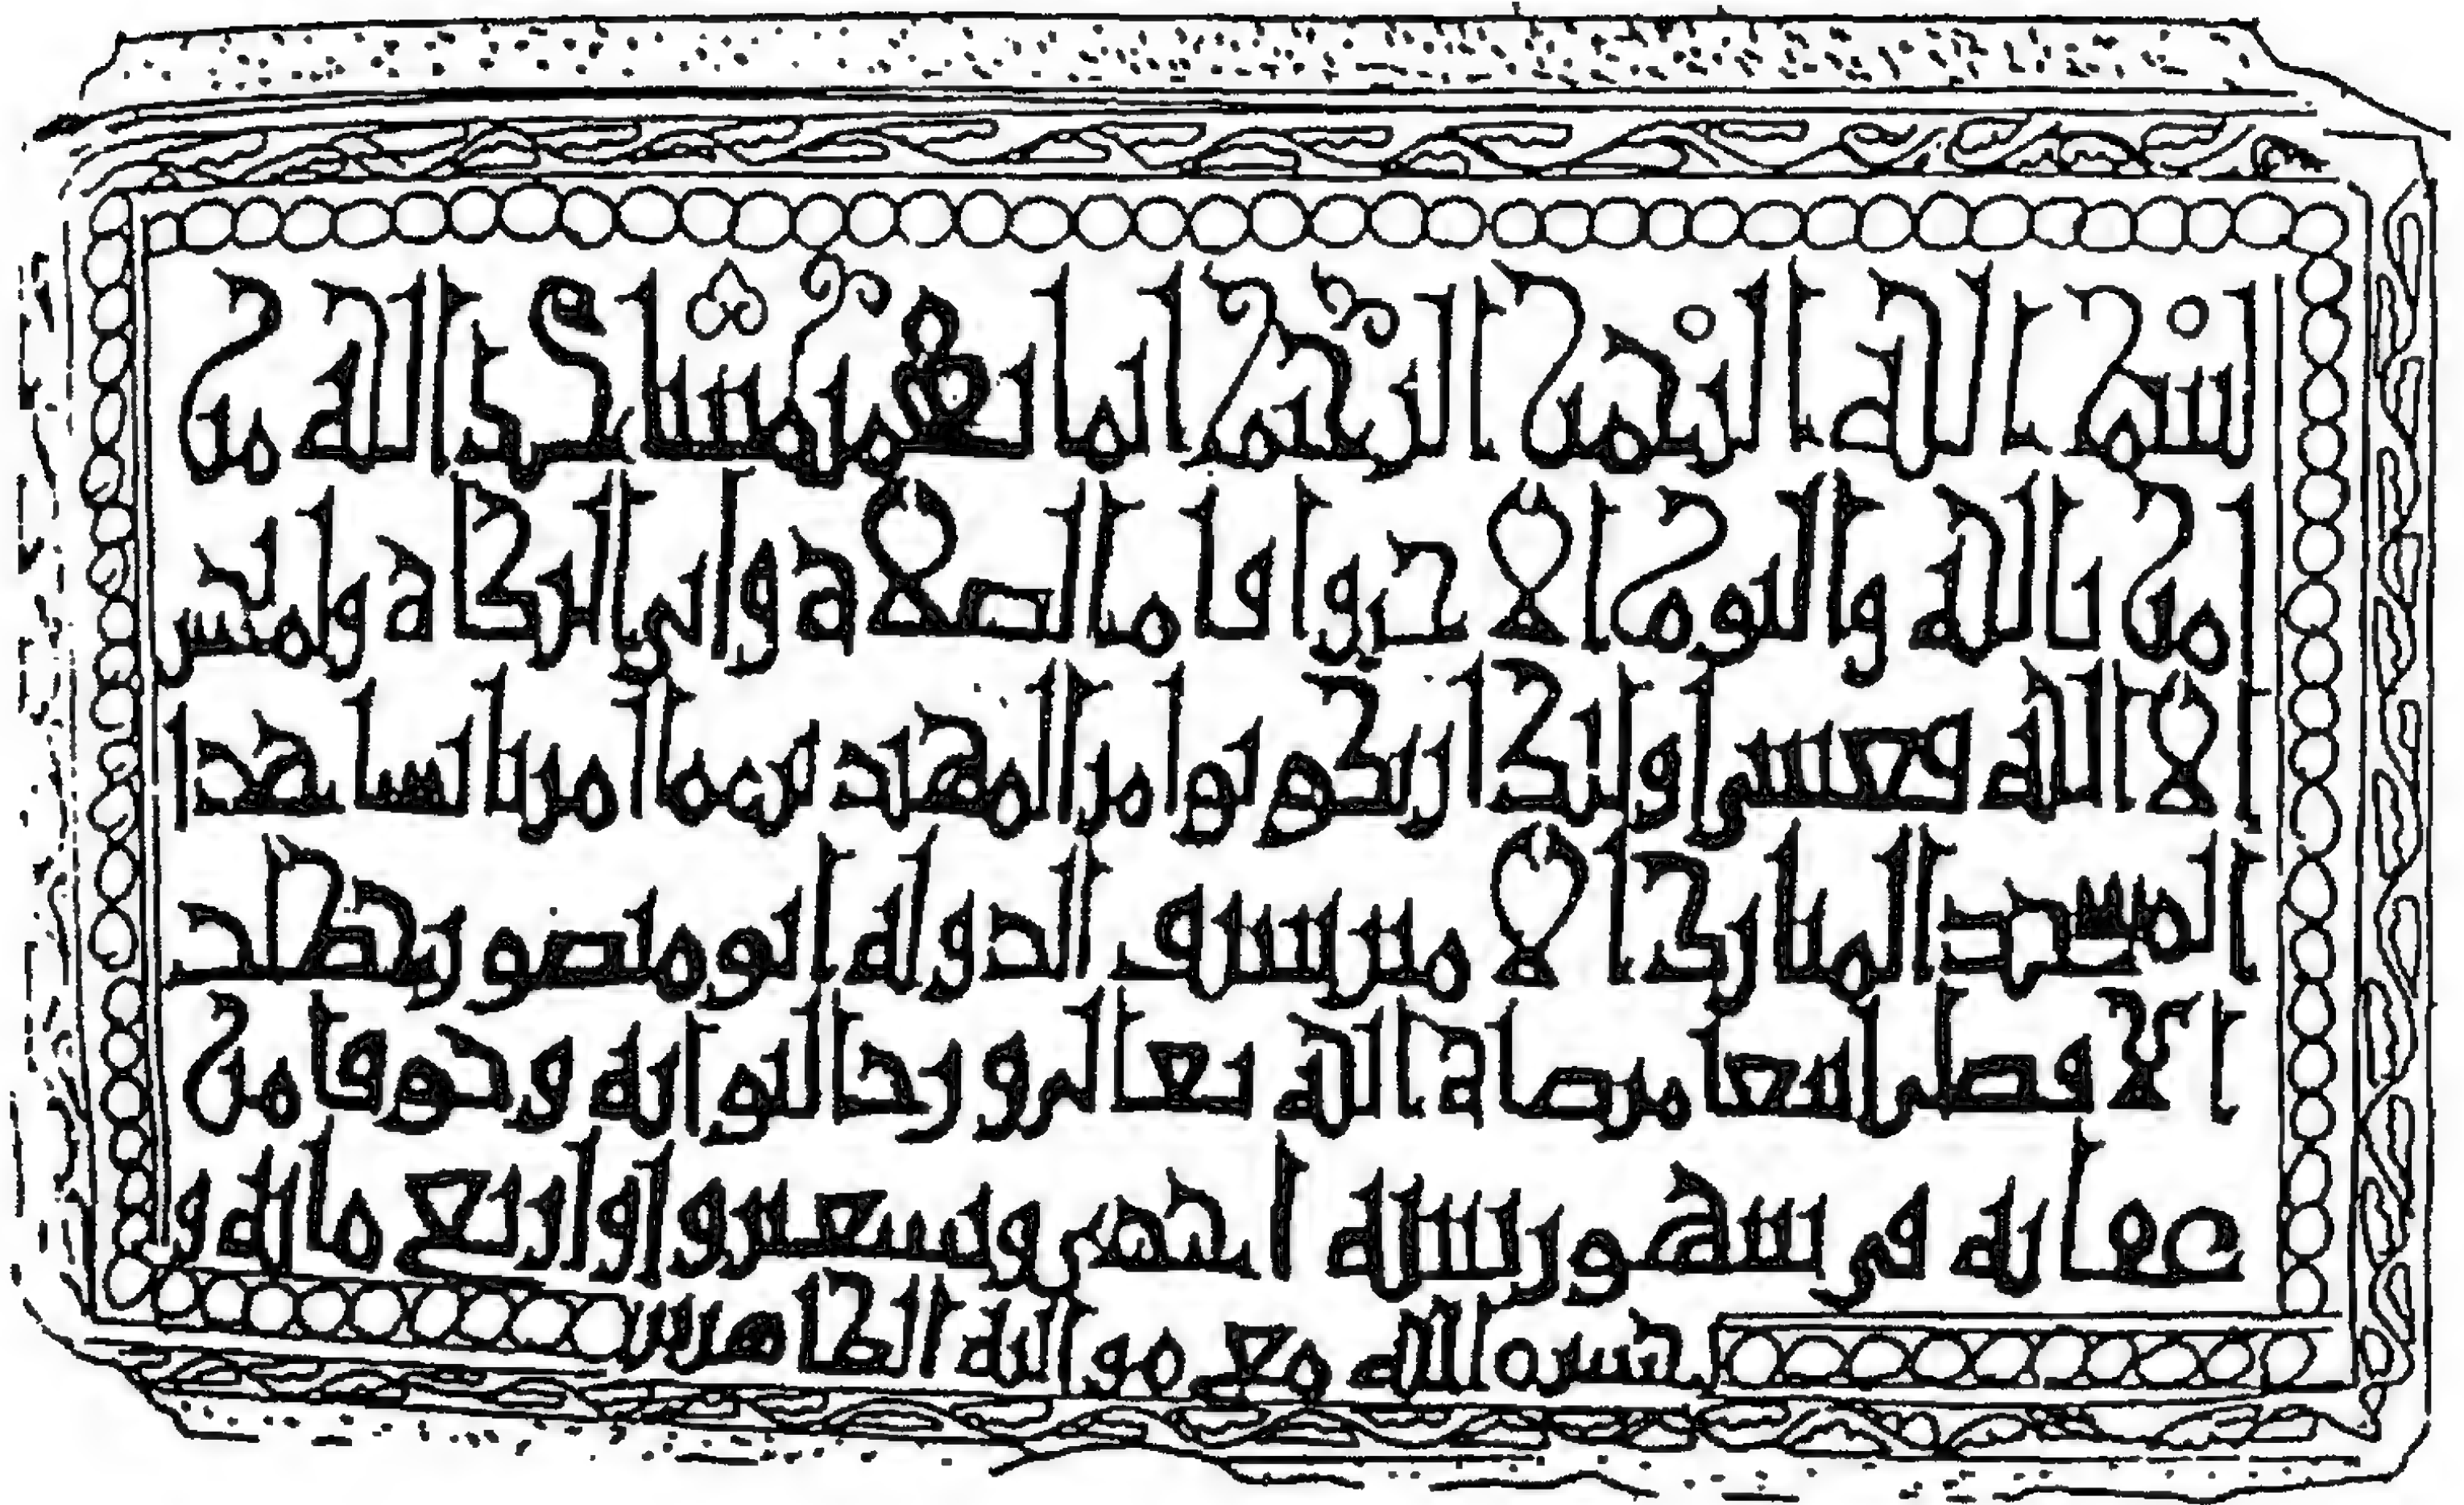 بسم الله الرحمن الرحيم انما يعمر مساجد الله من
امن بالله واليوم الاخر واقام الصلاة واتى الزكاة ولم يخش
الا الله فعسى اولئك ان يكونوا من المهتدين مما امر بانشا هذا
المسجد المبارك الامير شرف الدولة ابو منصور خطلخ
الا فضلي ابتغا مرضاة الله تعالى ورجا لثوابه وخوفا من
عقابه في شهور سنة احدى وتسعين واربع مائة و
حشره الله مع مواليه الطاهرين